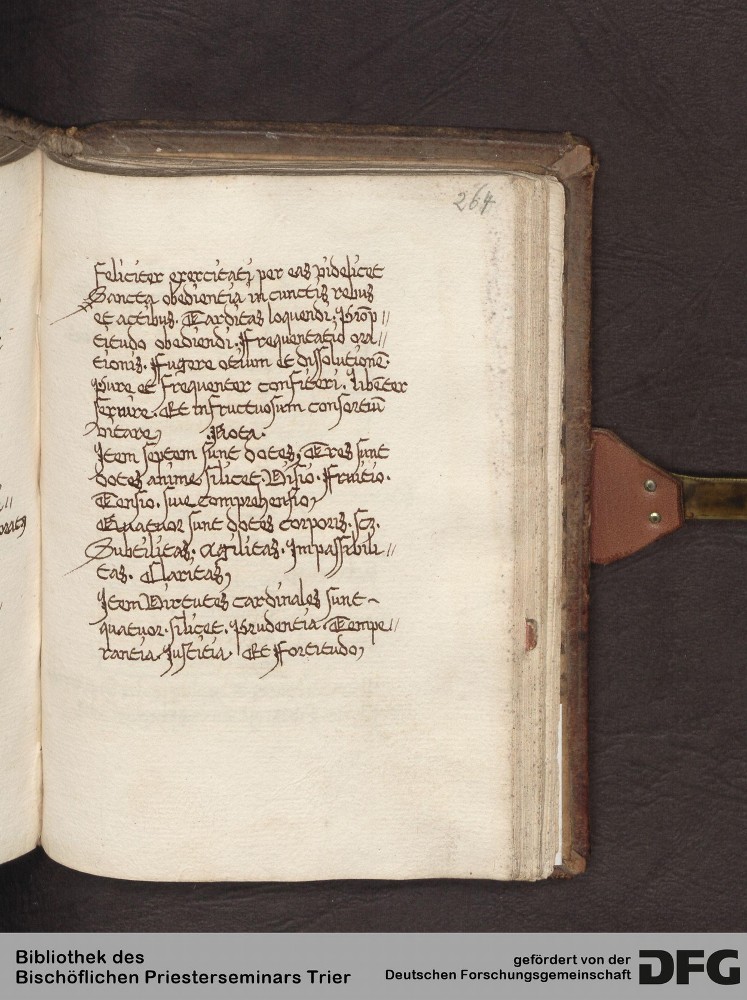 264
feliciter exercitati per eas videlicet
Sancta obedientia in cunctis rebus
et actibus. Tarditas loquendi. Promp//
titudo obediendi. Frequentatio ora//
tionis. Fugere otium et dissolutionē.
Pure et frequenter confiteri. Libēter
seruire. Et infructuosum consortiū
vitare, Nota.
Item septem sunt dotes, Tres sunt
dotes anime silicet. Visio. Fruitio.
Tensio. siue Comprehensio,
Quatuor sunt dotes corporis. scz.
Subtilitas. Agilitas. Impassibili//
tas. Claritas,
Item Virtutes cardinales sunt
quatuor. silicet. Prudentia. Tempe//
rantia. Justitia. Et Fortitudo,
Bibliothek des
Bischöflichen Priesterseminars Trier
gefördert von der
Deutschen Forschungsgemeinschaft
DFG